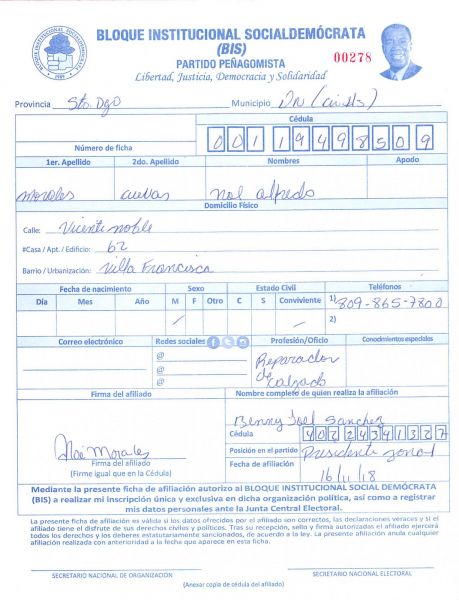 BLOQUE INSTITUCIONAL SOCIALDEMÓCRATA
(BIS)
PARTIDO PEÑAGOMISTA
00278
Libertad, Justicia, Democracia y Solidaridad
Provincia Sto. Dgo Municipio DN
Cédula
Número de ficha 00119498509
1er. Apellido 2do. Apellido Nombres Apodo
Morales cuevas Noé alfredo
Domicilio Físico
Calle: Vicente noble
#Casa / Apt. / Edificio: 62
Barrio / Urbanización: Villa Francisca
Fecha de nacimiento Sexo Estado Civil Teléfonos
Día Mes Año M F Otro C S Conviviente 1) 809-865-7800
2)
Correo electrónico Redes sociales Profesión/Oficio Conodmientos especiales
@
@
@
Reparador
de
calzado
Firma del afiliado Nombre completo de quien realiza la afiliación
Benny Joel Sanchez
Cédula 40224341327
Noé Morales
Posición en el partido Presidente zonal
Firma del afiliado
(Firme igual que en la Cédula)
Fecha de afiliación 16/11/18
Mediante la presente ficha de afiliación autorizo al BLOQUE INSTITUCIONAL SOCIAL DEMÓCRATA
(BIS) a realizar mi inscripción única y exclusiva en dicha organización política, así como a registrar
mis datos personales ante la Junta Central Electoral.
La presente afiliación es válida si los datos ofrecidos por el afiliado son correctos, las declaraciones veraces y si el
afiliado tiene el disfrute de sus derechos civiles y políticos. Tras su recepción, sello y firma autorizadas el afiliado ejercerá
todos los derechos y los deberes estatutariamente sancionados, de acuerdo a la ley. La presente afiliación anula cualquier
afiliación realizada con anterioridad a la fecha que aparece en esta ficha.
SECRETARIO NACIONAL DE ORGANIZACIÓN SECRETARIO NACIONAL ELECTORAL
(Anexar copia de cédula del afiliado)